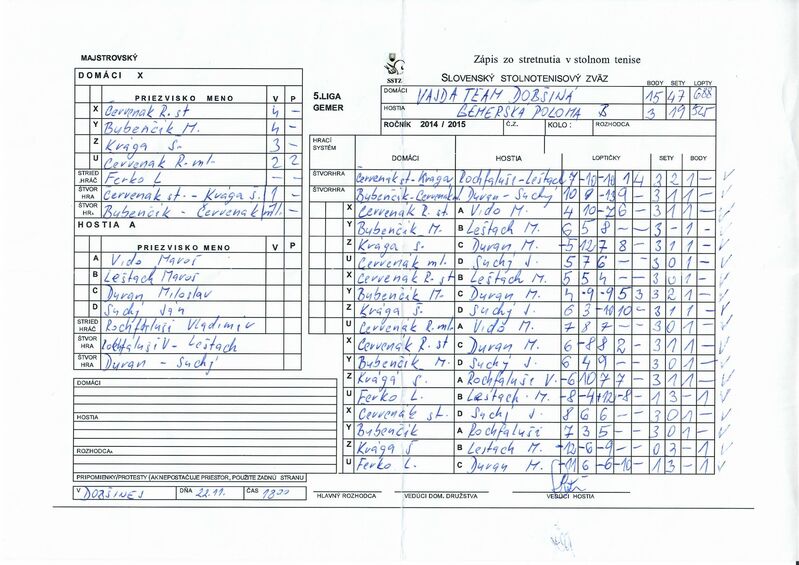 MAJSTROVSKÝ
DOMÁCI X
PRIEZVISKO MENO V P
X Červenák R. st 4 –
Y Bubenčík M. 4 –
Z Krága Š. 3 –
U Červenák R. ml. 2 2
STRIED HRÁČ Ferko L –
ŠTVOR HRA Červenák st. - Krága Š. 1 –
ŠTVOR HRA Bubenčík - Červenák ml. 1 –
HOSTIA A
PRIEZVISKO MENO V P
A Vido Maroš
B Leštach Maroš
C Duran Miloslav
D Suchý Ján
STRIED HRÁČ Rochfaluši Vladimír
ŠTVOR HRA Rochfaluši V - Leštach
ŠTVOR HRA Duran - Suchý
DOMÁCI
HOSTIA
ROZHODCA
PRIPOMIENKY/PROTESTY (AK NEPOSTAČUJE PRIESTOR, POUŽITE ZADNÚ STRANU
V DOBŠINEJ DŇA 22.11. ČAS 1300
SSTZ
Zápis zo stretnutia v stolnom tenise
SLOVENSKÝ STOLNOTENISOVÝ ZVÄZ
5.LIGA
GEMER
BODY SETY LOPTY
DOMÁCI VAJDA TEAM DOBŠINÁ 15 47 688
HOSTIA GEMERSKÁ POLOMA B 3 19 525
ROČNÍK 2014 / 2015 Č.Z. KOLO : ROZHODCA
HRACÍ SYSTÉM
DOMÁCI HOSTIA LOPTIČKY SETY BODY
ŠTVORHRA Červenák st - Krága Rochfaluši - Leštach 7 -10 -10 1 4 3 2 1 –
ŠTVORHRA Bubenčík - Červenák Duran - Suchý 10 9 -13 9 – 3 1 1 –
X Červenák R. st A Vido M. 4 10 -7 6 – 3 1 1 –
Y Bubenčík M. B Leštach M. 6 5 8 – – 3 – 1 –
Z Krága Š. C Duran M. -5 12 7 8 – 3 1 1 –
U Červenák ml. D Suchý J. 5 7 6 – – 3 0 1 –
X Červenák R. st B Leštach M. 5 5 4 – – 3 0 1 –
Y Bubenčík M. C Duran M. 4 -9 -9 5 3 3 2 1 –
Z Krága Š. D Suchý J. 6 3 -10 10 – 3 1 1 –
U Červenák R. ml. A Vido M. 7 8 7 – – 3 0 1 –
X Červenák R. st C Duran M. 6 -8 8 2 – 3 1 1 –
Y Bubenčík M. D Suchý J. 6 4 9 – – 3 0 1 –
Z Krága Š. A Rochfaluši V. -6 10 7 7 – 3 1 1 –
U Ferko L. B Leštach M. -8 -4 +12 -8 – 1 3 – 1
X Červenák st. D Suchý J. 8 6 6 – – 3 0 1 –
Y Bubenčík A Rochfaluši 7 3 5 – – 3 0 1 –
Z Krága Š B Leštach M. -12 -6 -9 – – 0 3 – 1
U Ferko L. C Duran M. -11 6 -6 -10 – 1 3 – 1
HLAVNÝ ROZHODCA VEDÚCI DOM. DRUŽSTVA VEDÚCI HOSTIA